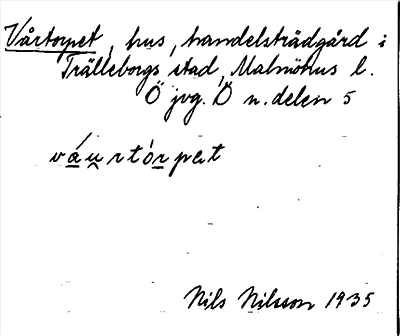 Vårtorpet, hus, handelsträdgård i
Trälleborgs stad, Malmöhus l.
Ö jvg. Ö n. delen 5
váu̯rtórpet
Nils Nilsson 1935